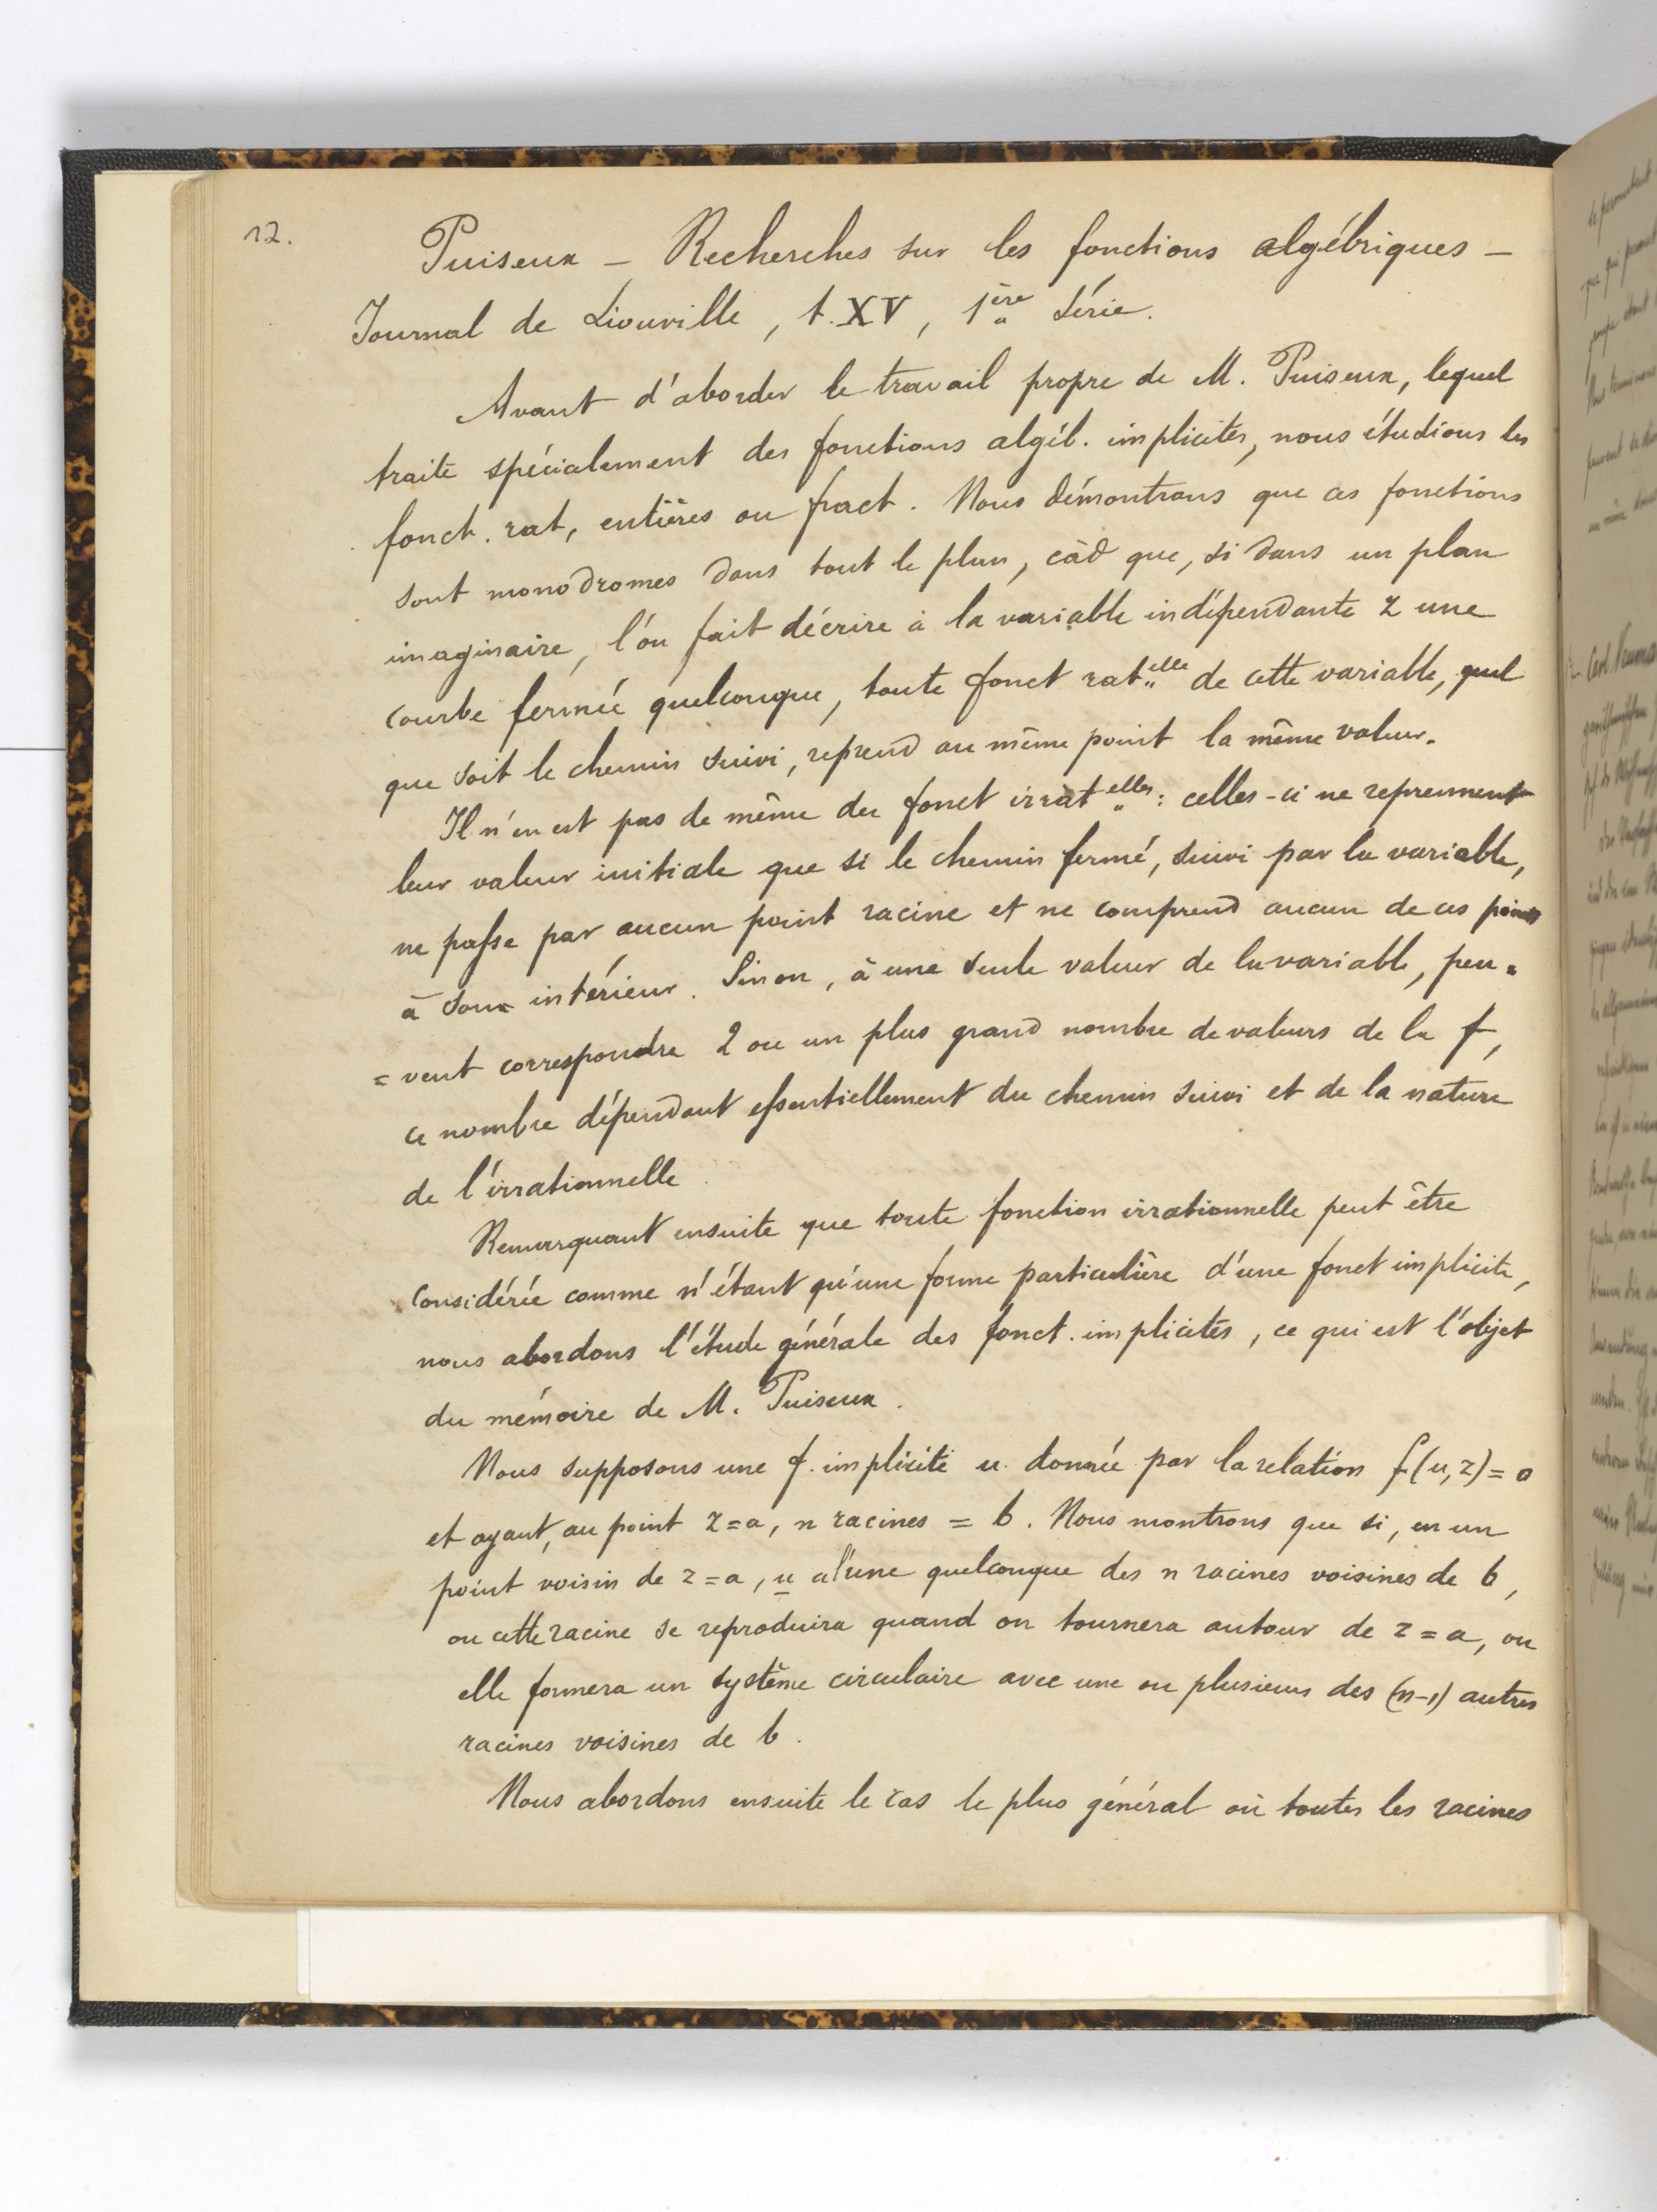 12.
Puiseux – Recherches sur les fonctions algébriques –
Journal de Liouville, t. XV, 1ère Série.
Avant d'aborder le travail propre de M. Puiseux, lequel
traite spécialement des fonctions algéb. implicites, nous étudions les
fonct. rat, entières ou fract. Nous démontrons que ces fonctions
sont monodromes dans tout le plan, càd que, si dans un plan
imaginaire, l'on fait décrire à la variable indépendante z une
courbe fermée quelconque, toute fonct ratelle de cette variable, quel
que soit le chemin suivi, reprend au même point la même valeur.
Il n'en est pas de même des fonct irratelles : celles-ci ne reprennent
leur valeur initiale que si le chemin fermé, suivi par la variable,
ne passe par aucun point racine et ne comprend aucun de ces points
à son intérieur. Sinon, à une seule valeur de la variable, peu=
=vent correspondre 2 ou un plus grand nombre de valeurs de la f,
ce nombre dépendant essentiellement du chemin suivi et de la nature
de l'irrationnelle.
Remarquant ensuite que toute fonction irrationnelle peut être
considérée comme n'étant qu'une forme particulière d'une fonct implicite,
nous abordons l'étude générale des fonct. implicites, ce qui est l'objet
du mémoire de M. Puiseux.
Nous supposons une f. implicite u donnée par la relation f(u,z)=0
et ayant, au point z=a, n racines = b. Nous montrons que si, en un
point voisin de z=a, u a l'une quelconque des n racines voisines de b,
ou cette racine se reproduira quand on tournera autour de z=a, ou
elle formera un système circulaire avec une ou plusieurs des (n-1) autres
racines voisines de b.
Nous abordons ensuite le cas le plus général où toutes les racines